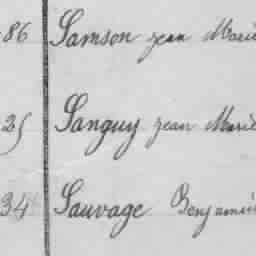 86 Samson jean Marie
25 Sanguy jean Marie
34 Sauvage Benjamin